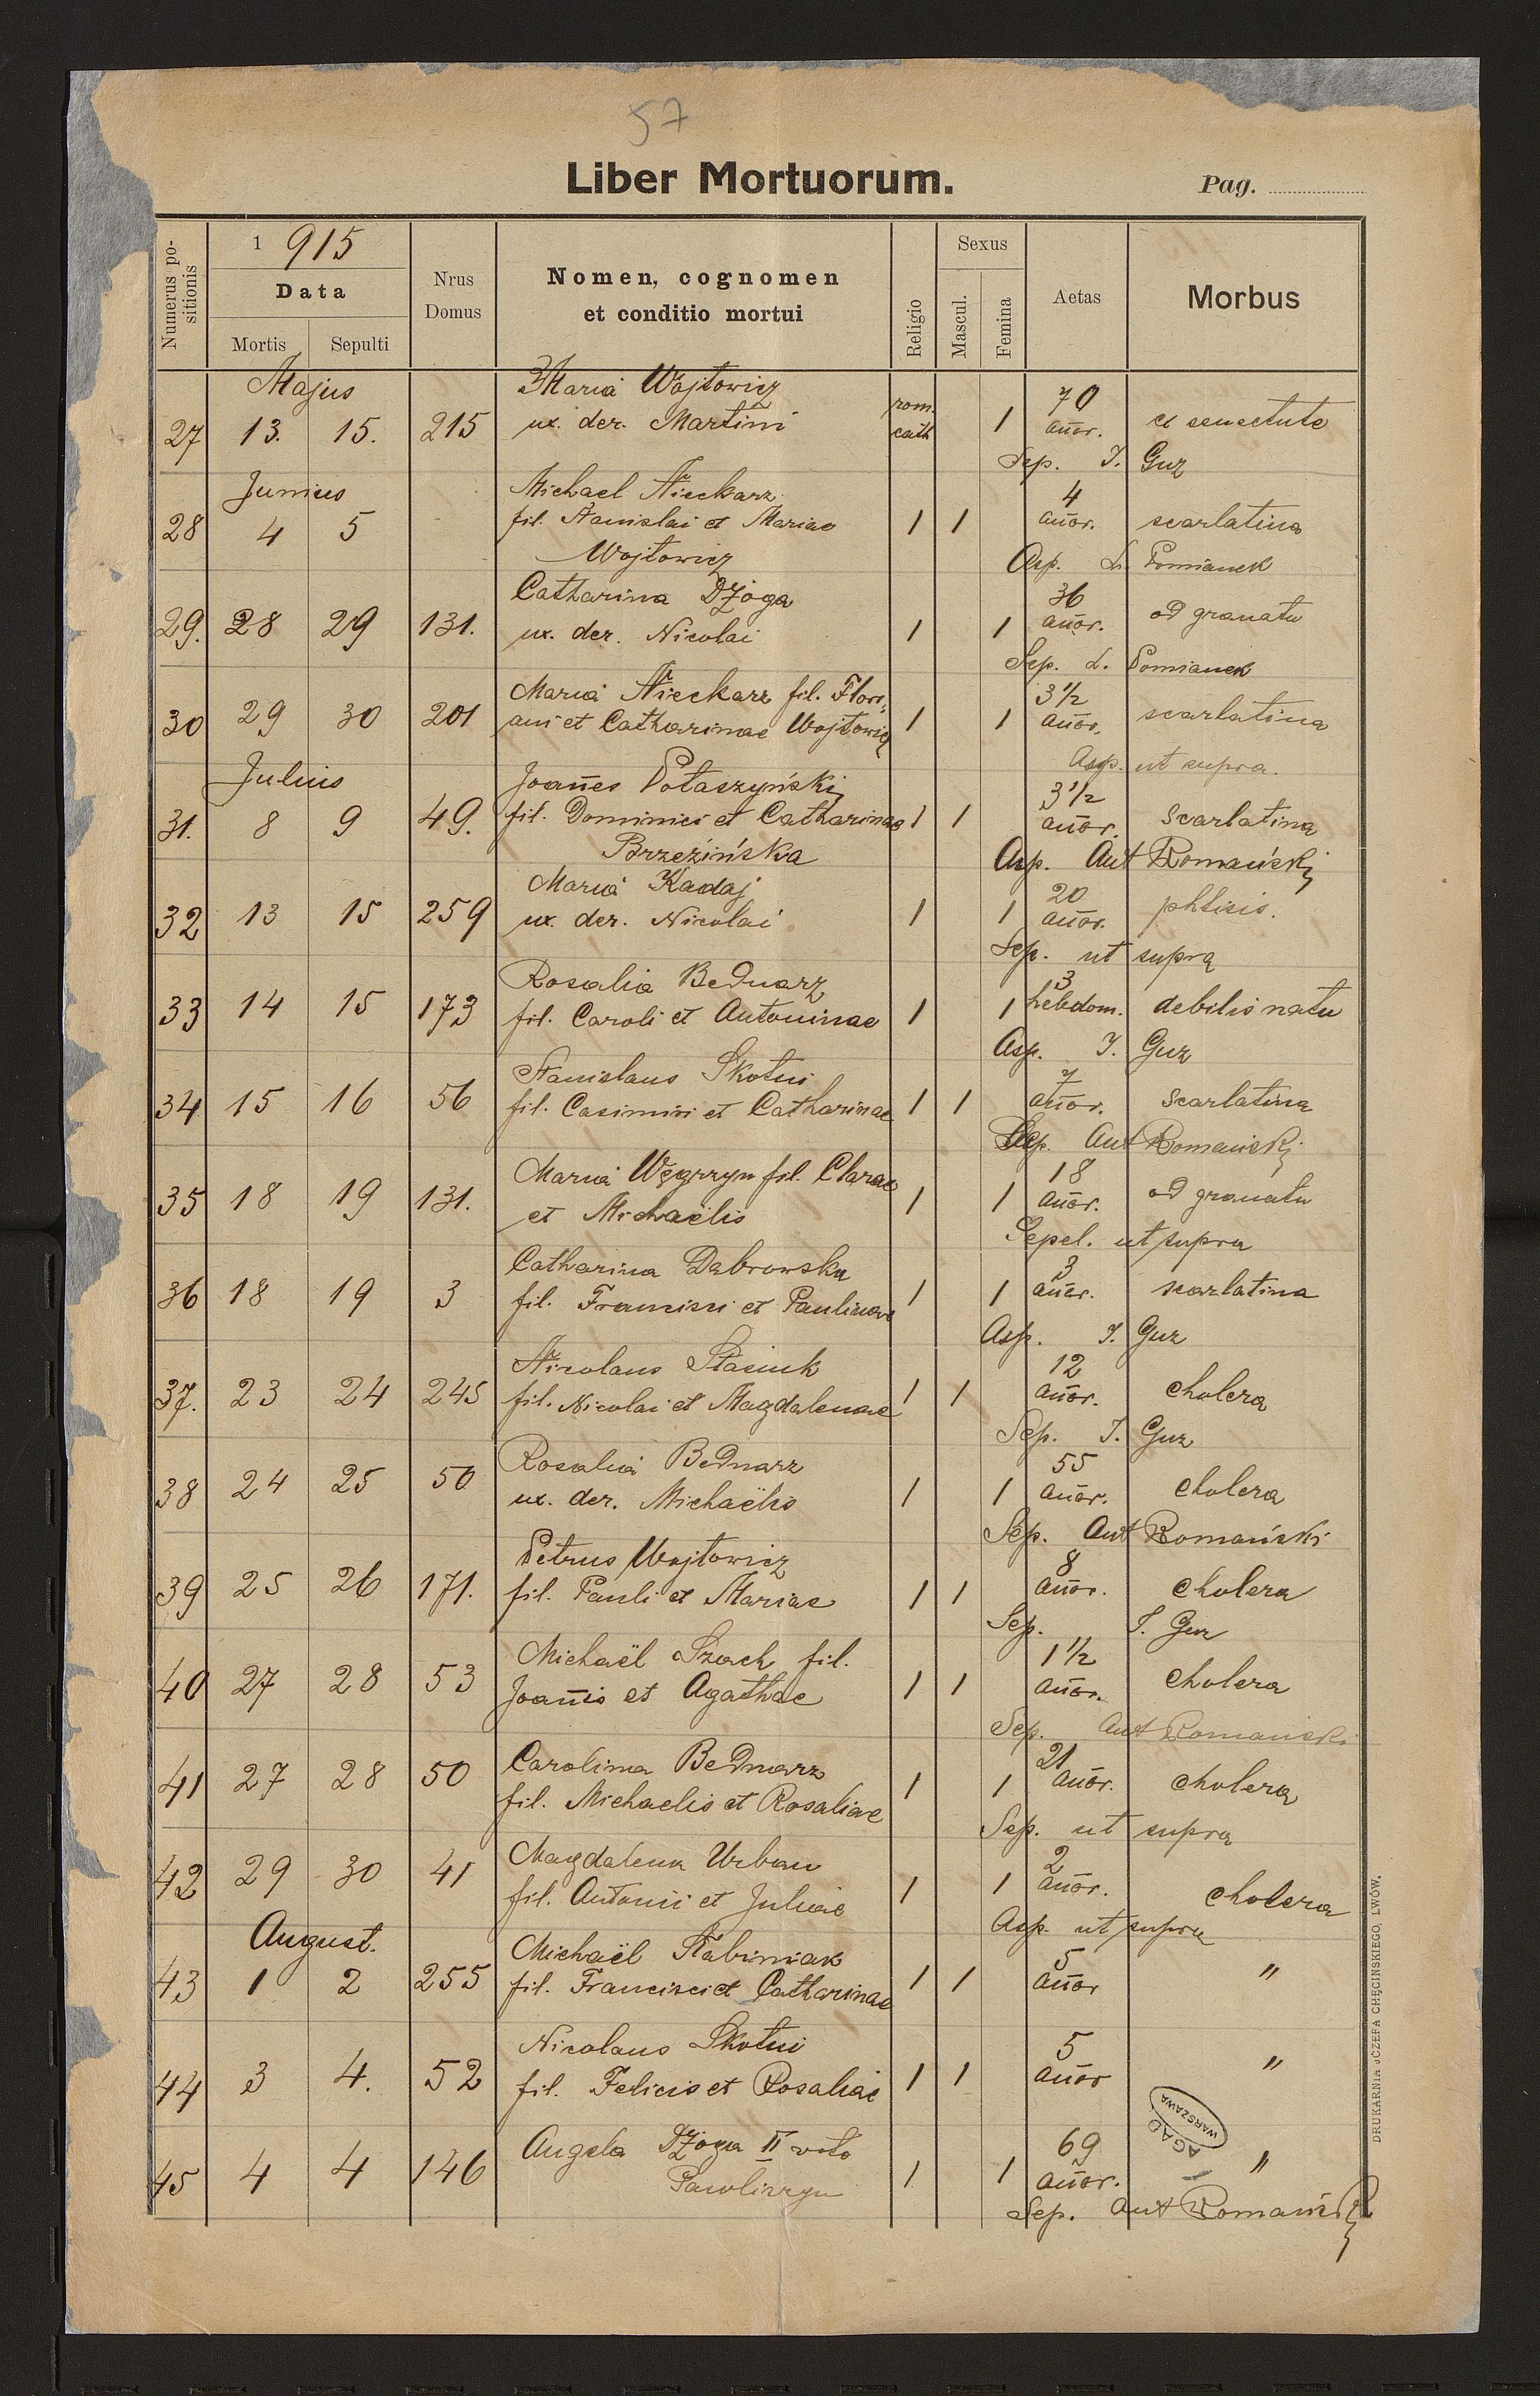 57
Liber Mortuorum.
Pag.
Numerus positionis
1 915
Data
Mortis
Sepulti
Nrus Domus
Nomen, cognomen
et conditio mortui
Religio
Sexus
Mascul.
Femina
Aetas
Morbus
Majus
Maria Wojtowicz 70
27 13. 15. 215 ux. der. Martini rom. cath 1 añor. senectute
Sep. J. Guz
Junius Michael Nieckarz 4
28 4 5 fil. Stanislai et Mariae 1 1 añor. scarlatina
Wojtowicz Asp. L. Pomianek
Catharina Dżoga 36
29. 28 29 131. ux. der. Nicolai 1 1 añor. od granatu
Sep. L. Pomianek
Maria Nieckarz fil. Flori, 3 1/2
30 29 30 201 ani et Catharinae Wojtowicz 1 1 añor. scarlatina
Asp. ut supra.
Julius Joañes Potaszyński 3 1/2
31. 8 9 49. fil. Dominici et Catharinae 1 1 añor. Scarlatina
Brzezińska Asp. Ant Romański
Maria Kadaj 20
32 13 15 259 ux. der. Nicolai 1 1 añor. phtisis.
Sep. ut supra
Rosalia Bednarz 3
33 14 15 173 fil. Caroli et Antoninae 1 1 hebdom. debilis natu
Asp. J. Guz
Stanislaus Skotni 7
34 15 16 56 fil. Casimiri et Catharinae 1 1 añor. Scarlatina
Ant Romański
Maria Węgrzyn fil. Clarae 18
35 18 19 131. et Michaëlis 1 1 añor. od granatu
Sepel. ut supra
Catharina Dabrowska 3
36 18 19 3 fil. Francisci et Paulinae 1 1 añor. scarlatina
Asp. J. Guz
Nicolaus Stasiuk 12
37. 23 24 245 fil. Nicolai et Magdalenae 1 1 añor. cholera
Sep. J. Guz
Rosalia Bednarz 55
38 24 25 50 ux. der. Michaëlis 1 1 añor. cholera
Sep. Ant Romański
Petrus Wojtowicz 8
39 25 26 171. fil. Pauli et Mariae 1 1 añor. cholera
Sep. J. Guz
Michaël Szach fil. 1 1/2
40 27 28 53 Joañis et Agathae 1 1 añor. cholera
Sep. Ant Romański
Carolina Bednarz 21
41 27 28 50 fil. Michaelis et Rosaliae 1 1 añor. cholera
Sep. ut supra
Magdalena Urban 2
42 29 30 41 fil. Antonii et Juliae 1 1 añor. cholera
Asp. ut supra
August. Michaël Stabiniak 5
43 1 2 255 fil. Francisci et Catharinae 1 1 añor "
Nicolaus Skotni 5
44 3 4. 52 fil. Felicis et Rosaliae 1 1 añor "
Angela Dżoga II voto 69
45 4 4 146 Pawliszyn 1 1 añor. "
Sep. Ant Romański
AGAD
WARSZAWA
DRUKARNIA JÓZEFA CHĘCIŃSKIEGO, LWÓW.